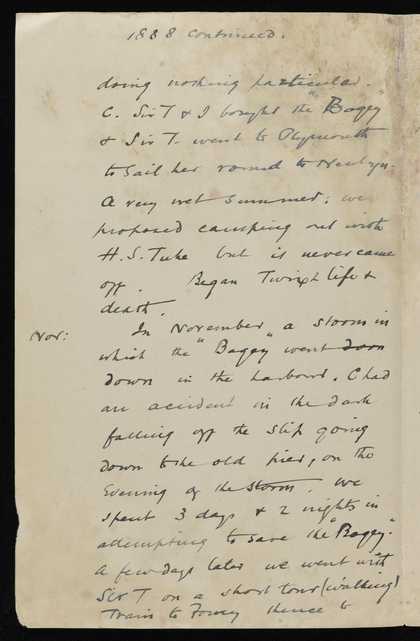 1888 continued.
doing nothing particular.
C. Sir T & I bought the "Bogey"
& Sir T. went to Plymouth
to sail her round to Newlyn.
A very wet summer: we
proposed camping out with
H. S. Tuke but it never came
off. Began Twixt life &
death.
Nov: In November a storm in
which the "Bogey" went down
down in the harbour. C had
an acident in the dark
falling off the slip going
down to the old pier, on the
Evening of the storm. We
spent 3 days & 2 nights in
attempting to save the "Bogey."
A few days later we went with
Sir T on a short tour (walking)
Train to Fowey thence to